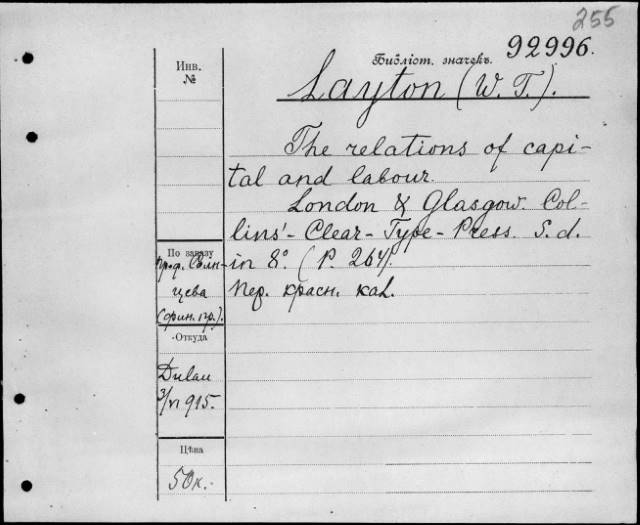 255
Библіот. значекъ. 92996.
Инв.
№
Layton (W. T.).
The relations of capi-
tal and labour.
London & Glasgow. Col-
lins'- Clear - Type - Press. S. d.
По заказу
in 8°. (P. 264).
Проф. Солн-
цева
(фин. пр.).
Пер. красн. кал.
Откуда
Dulau
3/VI 915.
Цѣна
50к.